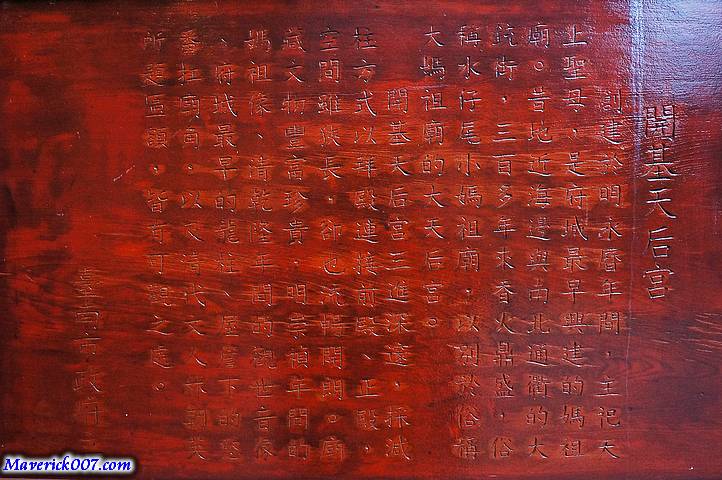 開基天后宮
創建於明永曆年間,主祀天
上聖母,是府城最早興建的媽祖
廟。昔地近海邊與南北通衢的大
銃街,三百多年來香火鼎盛,俗
稱水仔尾小媽祖廟,以別於俗稱
大媽祖廟的大天后宮。
開基天后宮三進深邃,採減
柱方式以拜殿連接前殿、正殿,
空間雖狹長,卻也流暢開朗。廟
藏文物豐富珍貴,明崇禎年間的
媽祖像、清乾隆年間的觀世音像
、府城最早的龍柱、屋簷下的憨
番扛頭角,以及清代文人林朝英
所題匾額,皆有可觀之處。
臺南市政府
Maverick007.com